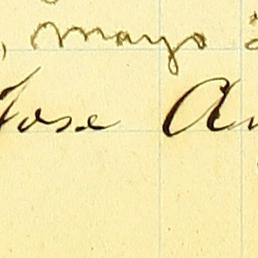 , mayo
Jose A